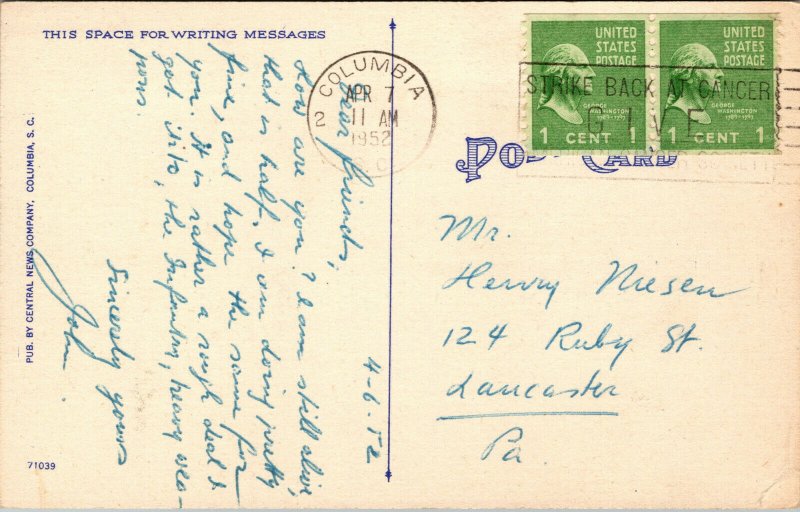 THIS SPACE FOR WRITING MESSAGES
4-6-52
Dear friends,
How are you? I am still alive,
that is half. I am doing pretty
fine, and hope the same for
you. It is rather a rough deal I
got into, the Infantry, heavy wea-
pons.
Sincerely yours
John.
PUB. BY CENTRAL NEWS COMPANY, COLUMBIA, S. C.
71039
COLUMBIA
APR 7
2 11 AM
1952
S.C.
UNITED
STATES
POSTAGE
GEORGE
WASHINGTON
1789-1797
1 CENT 1
UNITED
STATES
POSTAGE
GEORGE
WASHINGTON
1789-1797
1 CENT 1
STRIKE BACK AT CANCER
GIVE
POST CARD
Mr.
Henry Niesen
124 Ruby St.
Lancaster
Pa.